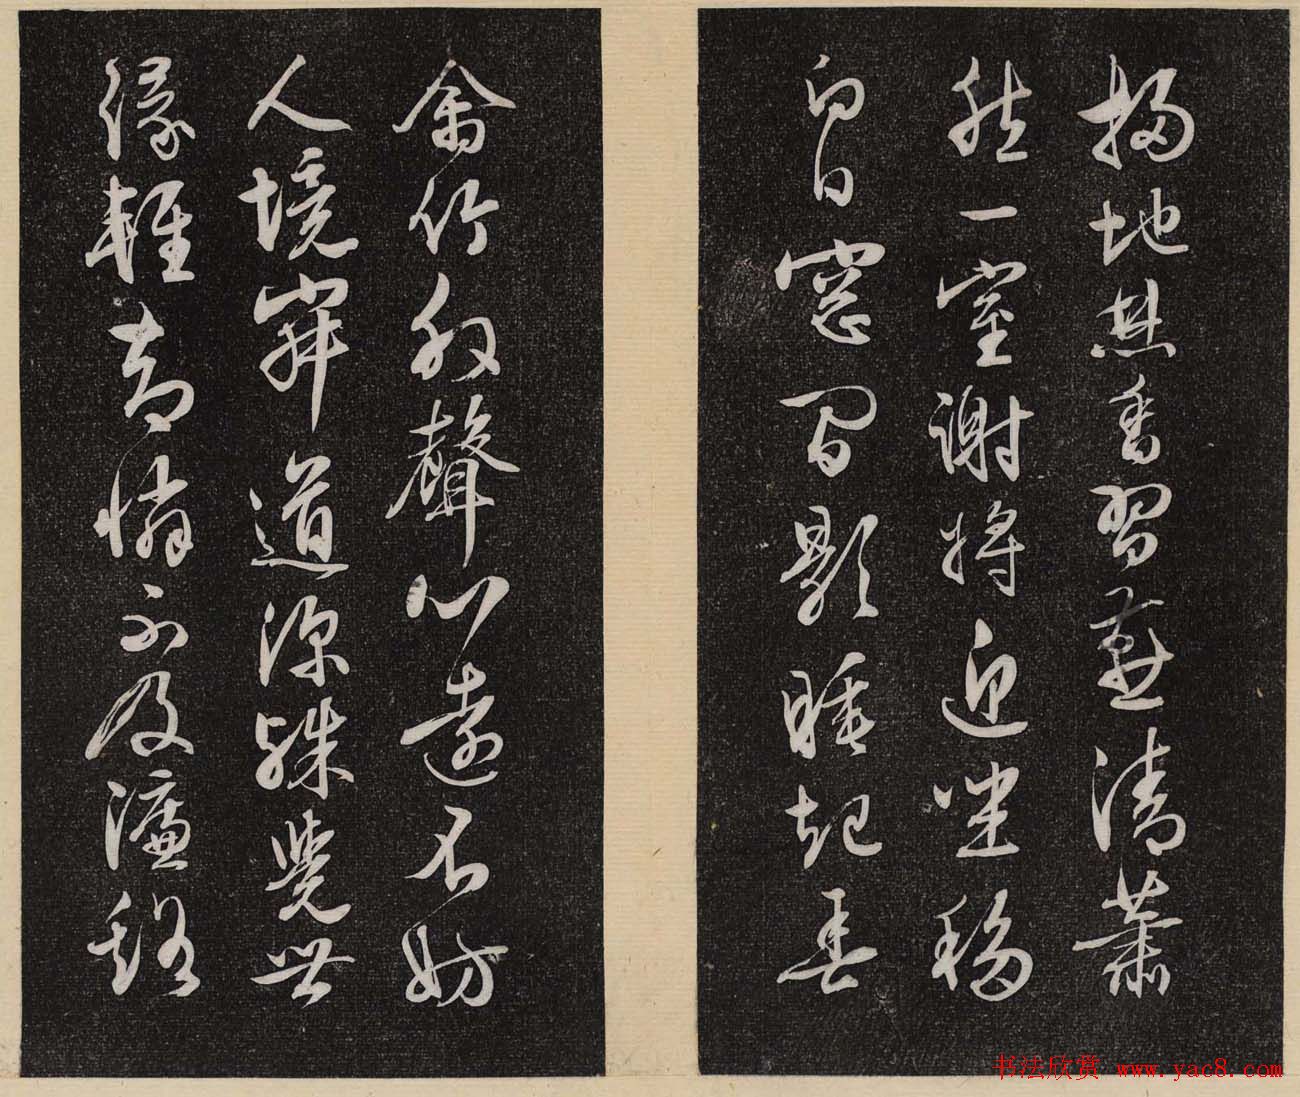 掃地焚香習燕清蕭
然一室謝將迎坐移
白日窗間影睡起春
禽竹外聲心遠不妨
人境寂道深殊覺世
緣輕却憐不及濂谿
书法欣赏 www.yac8.com